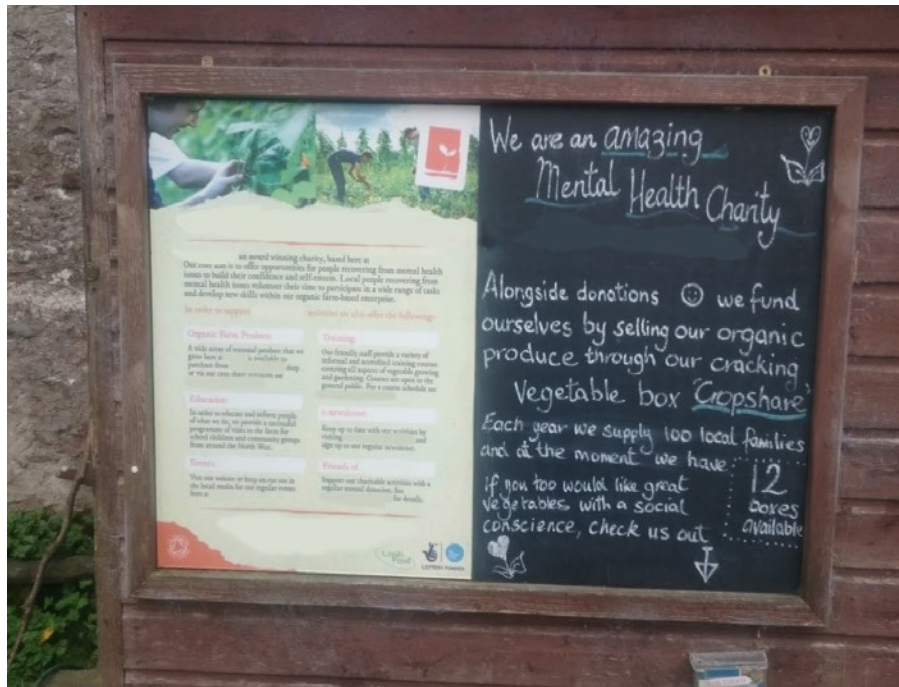 an award winning charity, based here at
Our core aim is to offer opportunities for people recovering from mental health
issues to build their confidence and self-esteem. Local people recovering from
mental health issues volunteer their time to participate in a wide range of tasks
and develop new skills within our organic farm-based enterprise.
In order to support
activities we also offer the following:
Organic Farm Produce:
A wide array of seasonal produce that we
grow here is available to
purchase from shop
or via our crop share
Education:
In order to educate and inform people
of what we do, we provide a successful
programme of visits to the farm for
school children and community groups
from around the North West.
Events:
Visit our website or keep an eye out in
the local media for our regular events
here at
Training:
Our friendly staff provide a variety of
informal and accredited training courses
covering all aspects of vegetable growing
and gardening. Courses are open to the
general public. For a course schedule see
e-newsletter:
Keep up to date with our activities by
visiting and
sign up to our regular newsletter.
Friends of
Support our charitable activities with a
regular annual donation. See
for details.
Local
Food
LOTTERY FUNDED
We are an amazing
Mental Health Charity
Alongside donations we fund
ourselves by selling our organic
produce through our cracking
vegetable box 'Cropshare'
Each year we supply 100 local families
and at the moment we have
12
boxes
available
If you too would like great
vegetables with a social
conscience, check us out